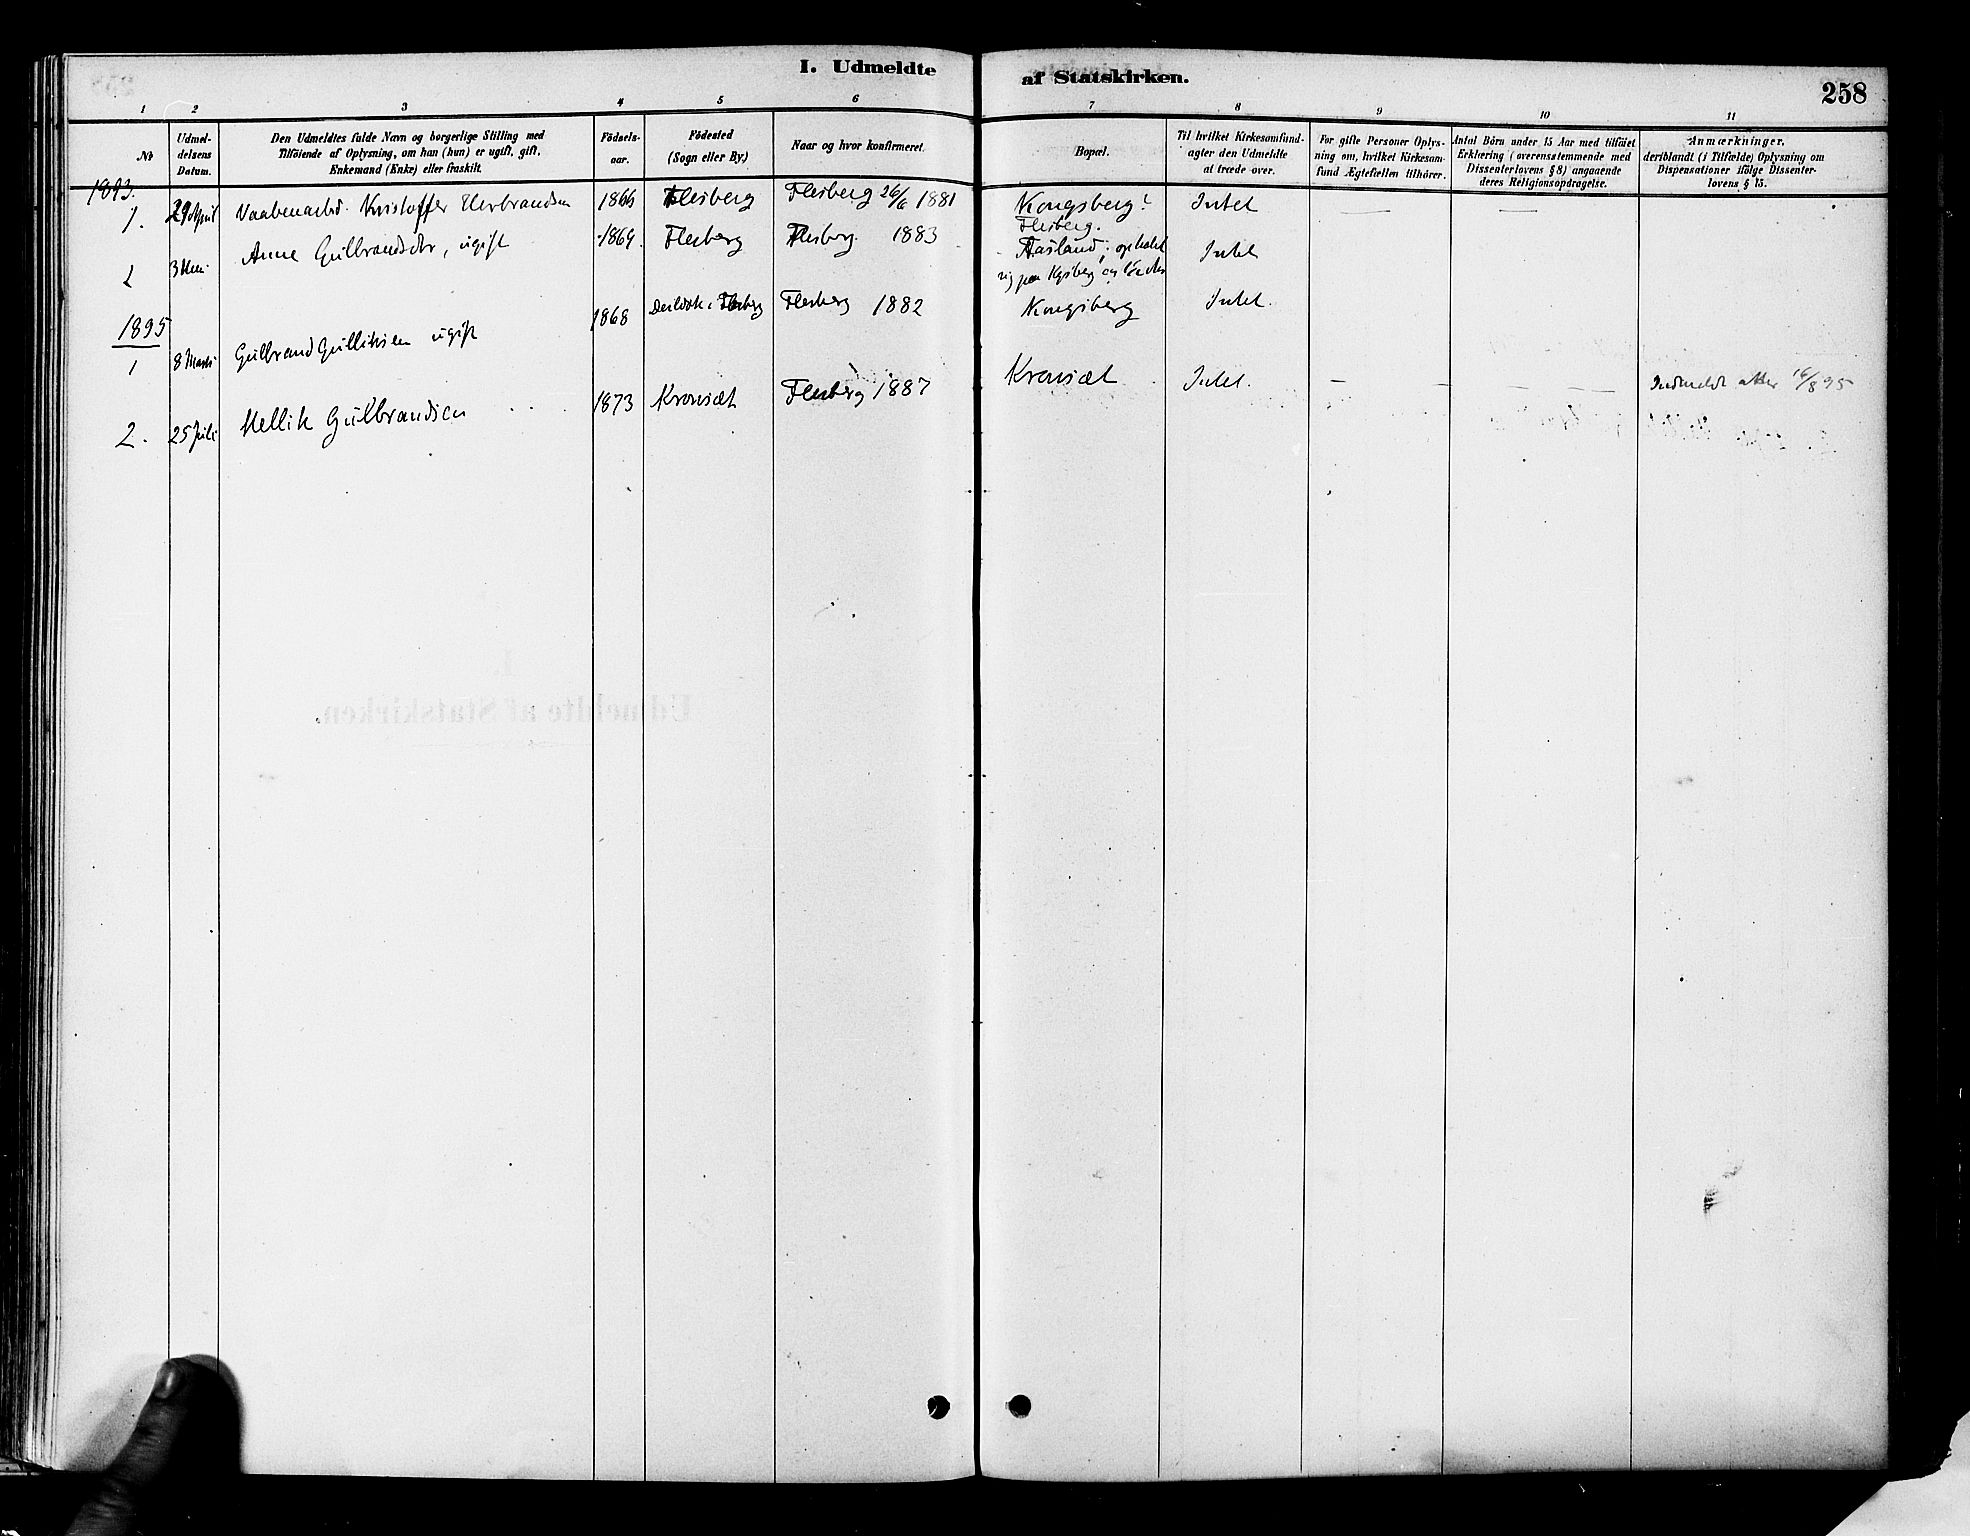 I. Udmeldte af Statskirken.
258
1 2 3 4 5 6 7 8 9 10 11
Nr
Udmel-
delsens
Datum.
Den Udmeldtes fulde Navn og borgerlige Stilling med
Tilføiende af Oplysning, om han (hun) er ugift, gift,
Enkemand (Enke) eller fraskilt.
Fødsels-
aar.
Fødested
(Sogn eller By)
Naar og hvor konfirmeret.
Bopæl.
Til hvilket Kirkesamfund
agter den Udmeldte
at træde over.
For gifte Personer Oplys-
ning om, hvilket Kirkesam-
fund Ægtefællen tilhører.
Antal Børn under 15 Aar med tilføiet
Erklæring (overensstemmende med
Dissenterlovens § 8) angaaende
deres Religionsopdragelse.
Anmærkninger,
deriblandt (i Tilfælde) Oplysning om
Dispensationer ifølge Dissenter-
lovens § 15.
1893.
1. 29 April Vaabenarbd. Kristoffer Herbrandsen 1866 Flesberg Flesberg 26/6 1881 Kongsberg! Intet — —
Flesberg.
2 3 Mai Anne Gulbrandsdtr, ugift 1869. Flesberg Flesberg. 1883 Aasland; opholdt Intet
sig paa Kgsberg
1895
1 8 Marts Gulbrand Gulliksen ugift 1868 Flesberg Flesberg 1882 Kongsberg Intet.
2. 25 Juli Hellik Gulbrandsen 1873 Kronsæt Flesberg 1887 Kronsæt Intet. — — — — Indmeldt atter 16/8 95